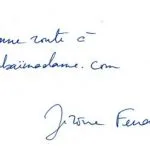 nne route à
baimadame.com
Jérôme Fena